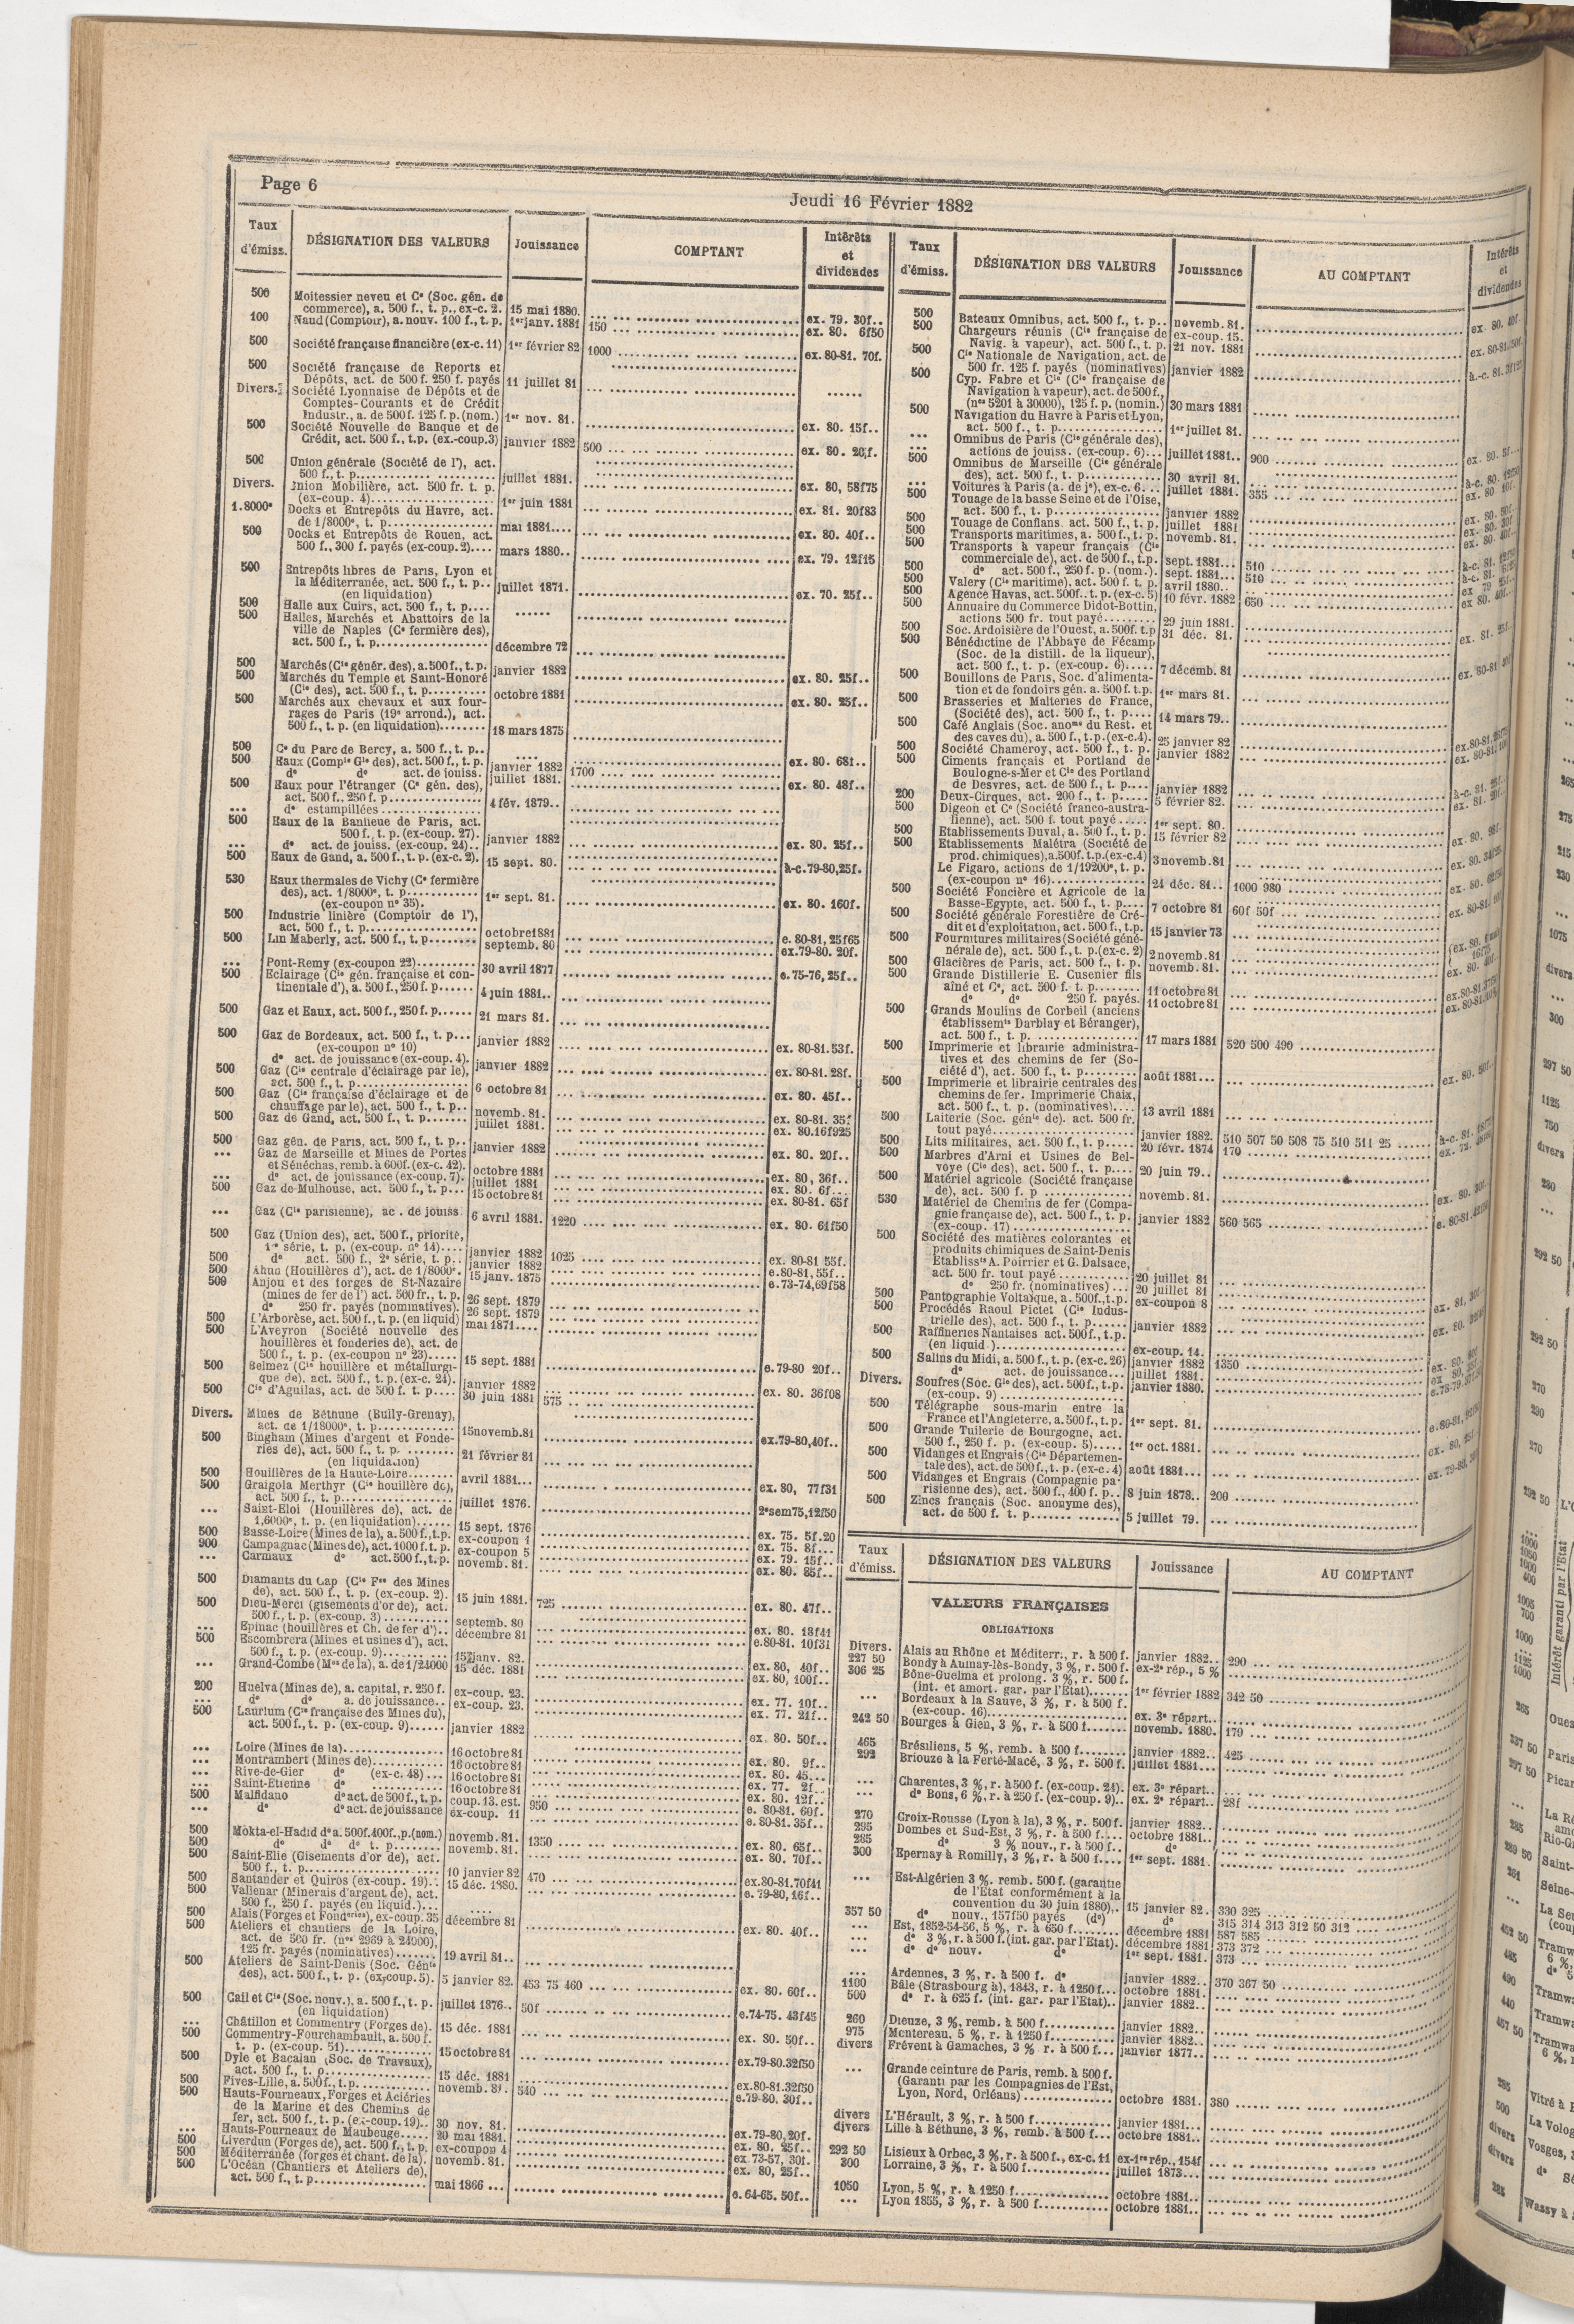 Page 6
Jeudi 16 Février 1882
Taux d'émiss. DÉSIGNATION DES VALEURS Jouissance COMPTANT Intérêts et dividendes
500 Moitessier neveu et Ce (Soc. gén. de
commerce), a. 500 f., t. p., ex-c. 2. 15 mai 1880. ex. 79. 30f..
100 Naud (Comptoir), a. nouv. 100 f., t. p. 1er janv. 1881 150 ex. 80. 6f50
500 Société française financière (ex-c. 11) 1er février 82 1000 ex. 80-81. 70f.
500 Société française de Reports et
Dépôts, act. de 500 f. 250 f. payés 11 juillet 81
Divers. Société Lyonnaise de Dépôts et de
Comptes-Courants et de Crédit
Industr., a. de 500 f. 125 f. p. (nom.) 1er nov. 81. ex. 80. 15f..
500 Société Nouvelle de Banque et de
Crédit, act. 500 f., t.p. (ex.-coup.3) janvier 1882 500 ex. 80. 20f.
500 Union générale (Société de l'), act.
500 f., t. p. juillet 1881. ex. 80, 58f75
Divers. Union Mobilière, act. 500 fr. t. p.
(ex-coup. 4) 1er juin 1881 ex. 81. 20f83
1.8000e Docks et Entrepôts du Havre, act.
de 1/8000e, t. p. mai 1881.... ex. 80. 40f..
500 Docks et Entrepôts de Rouen, act.
500 f., 300 f. payés (ex-coup. 2).... mars 1880.. ex. 79. 12f15
500 Entrepôts libres de Paris, Lyon et
la Méditerranée, act. 500 f., t. p..
(en liquidation) juillet 1871. ex. 70. 25f..
500 Halle aux Cuirs, act. 500 f., t. p....
500 Halles, Marchés et Abattoirs de la
ville de Naples (Ce fermière des),
act. 500 f., t. p. décembre 72
500 Marchés (Cie génér. des), a. 500 f., t. p. janvier 1882 ex. 80. 25f..
500 Marchés du Temple et Saint-Honoré
(Cie des), act. 500 f., t. p. octobre 1881 ex. 80. 25f..
500 Marchés aux chevaux et aux four-
rages de Paris (19e arrond.), act.
500 f., t. p. (en liquidation) 18 mars 1875
500 Ce du Parc de Bercy, a. 500 f., t. p..
500 Eaux (Compie Gle des), act. 500 f., t. p. janvier 1882 ex. 80. 68f..
do do act. de jouiss. juillet 1881. 1700 ex. 80. 48f..
500 Eaux pour l'étranger (Ce gén. des),
act. 500 f., 250 f. p. 4 fév. 1879..
... do estampillées
500 Eaux de la Banlieue de Paris, act.
500 f., t. p. (ex-coup. 27). janvier 1882 ex. 80. 25f..
... do act. de jouiss. (ex-coup. 24)..
500 Eaux de Gand, a. 500 f., t. p. (ex-c. 2). 15 sept. 80. à-c. 79-80, 25f.
530 Eaux thermales de Vichy (Ce fermière
des), act. 1/8000e, t. p.
(ex-coupon no 35). 1er sept. 81. ex. 80. 160f.
500 Industrie linière (Comptoir de l'),
act. 500 f., t. p. octobre 1881 e. 80-81, 25f65
500 Lin Maberly, act. 500 f., t. p. septemb. 80 ex. 79-80. 20f.
... Pont-Remy (ex-coupon 22) 30 avril 1877 e. 75-76, 25f..
500 Eclairage (Cie gén. française et con-
tinentale d'), a. 500 f., 250 f. p. 4 juin 1881..
500 Gaz et Eaux, act. 500 f., 250 f. p. 21 mars 81.
500 Gaz de Bordeaux, act. 500 f., t. p...
(ex-coupon no 10) janvier 1882 ex. 80-81. 53f.
do act. de jouissance (ex-coup. 4).
500 Gaz (Cie centrale d'éclairage par le),
act. 500 f., t. p. janvier 1882 ex. 80-81. 28f.
500 Gaz (Cie française d'éclairage et de
chauffage par le), act. 500 f., t. p.. 6 octobre 81 ex. 80. 45f..
500 Gaz de Gand, act. 500 f., t. p. novemb. 81. ex. 80-81. 35f
juillet 1881. ex. 80. 16f925
500 Gaz gén. de Paris, act. 500 f., t. p.. janvier 1882 ex. 80. 20f..
... Gaz de Marseille et Mines de Portes
et Sénéchas, remb. à 600f. (ex-c. 42). octobre 1881 ex. 80, 36f..
... do act. de jouissance (ex-coup. 7). juillet 1881 ex. 80. 6f...
500 Gaz de Mulhouse, act. 500 f., t. p... 15 octobre 81 ex. 80-81. 65f
... Gaz (Cie parisienne), ac. de jouiss. 6 avril 1881. 1220 ex. 80. 61f50
500 Gaz (Union des), act. 500 f., priorité,
1re série, t. p. (ex-coup. no 14).... janvier 1882 1025 ex. 80-81 55f.
500 do act. 500 f., 2e série, t. p.. janvier 1882 e. 80-81, 55f..
500 Ahun (Houillères d'), act. de 1/8000e. 15 janv. 1875 e. 73-74, 69f58
500 Anjou et des forges de St-Nazaire
(mines de fer de l') act. 500 fr., t. p. 26 sept. 1879
do 250 fr. payés (nominatives). 26 sept. 1879
500 L'Arborèse, act. 500 f., t. p. (en liquid) mai 1871....
500 L'Aveyron (Société nouvelle des
houillères et fonderies de), act. de
500 f., t. p. (ex-coupon no 23)..... 15 sept. 1881 e. 79-80 20f..
500 Belmez (Cie houillère et métallurgi-
que de). act. 500 f., t. p. (ex-c. 24). janvier 1882 ex. 80. 36f08
500 Cie d'Aguilas, act. de 500 f. t. p.... 30 juin 1881 575
Divers. Mines de Béthune (Bully-Grenay),
act. de 1/18000e, t. p. 15 novemb. 81 ex. 79-80, 40f..
500 Bingham (Mines d'argent et Fonde-
ries de), act. 500 f., t. p.
(en liquidation) 21 février 81
500 Houillères de la Haute-Loire avril 1881... ex. 80, 77f31
500 Graigola Merthyr (Cie houillère de),
act. 500 f., t. p. juillet 1876. 2e sem 75, 12f50
... Saint-Eloi (Houillères de), act. de
1,6000e, t. p. (en liquidation) 15 sept. 1876 ex. 75. 5f.20
500 Basse-Loire (Mines de la), a. 500 f., t. p. ex-coupon 1 ex. 75. 8f...
900 Campagnac (Mines de), act. 1000 f. t. p. ex-coupon 5 ex. 79. 15f..
... Carmaux do act. 500 f., t. p. novemb. 81. ex. 80. 85f..
500 Diamants du Cap (Cie Fse des Mines
de), act. 500 f., t. p. (ex-coup. 2). 15 juin 1881. 725 ex. 80. 47f..
500 Dieu-Merci (gisements d'or de), act.
500 f., t. p. (ex-coup. 3) septemb. 80 ex. 80. 18f41
... Epinac (houillères et Ch. de fer d').. décembre 81 e. 80-81. 10f31
500 Escombrera (Mines et usines d'), act.
500 f., t. p. (ex-coup. 9) 15 janv. 82. ex. 80, 40f..
... Grand-Combe (Mes de la), a. de 1/24000 15 déc. 1881 ex. 80, 100f..
200 Huelva (Mines de), a. capital, r. 250 f. ex-coup. 23. ex. 77. 10f..
... do do a. de jouissance.. ex-coup. 23. ex. 77. 21f..
500 Laurium (Cie française des Mines du),
act. 500 f., t. p. (ex-coup. 9) janvier 1882 ex. 80. 50f..
... Loire (Mines de la) 16 octobre 81 ex. 80. 9f..
... Montrambert (Mines de) 16 octobre 81 ex. 80. 45...
... Rive-de-Gier do (ex-c. 48) ... 16 octobre 81 ex. 77. 2f...
... Saint-Etienne do 16 octobre 81 ex. 80. 12f..
500 Malfidano do act. de 500 f., t. p. coup. 13. est. 950 e. 80-81. 60f.
... do do act. de jouissance ex-coup. 11 e. 80-81. 35f..
500 Mokta-el-Hadid do a. 500f. 400f., p. (nom.) novemb. 81. 1350 ex. 80. 65f..
500 do do do t. p. novemb. 81. ex. 80. 70f..
500 Saint-Elie (Gisements d'or de), act.
500 f., t. p. 10 janvier 82 470 ex. 80-81. 70f41
500 Santander et Quiros (ex-coup. 19).. 15 déc. 1880. e. 79-80, 16f..
500 Vallenar (Minerais d'argent de), act.
500 f., 250 f. payés (en liquid.)...
500 Alais (Forges et Fonderies), ex-coup. 35 décembre 81 ex. 80. 40f..
500 Ateliers et chantiers de la Loire,
act. de 500 fr. (nos 2969 à 24000),
125 fr. payés (nominatives) 19 avril 81..
500 Ateliers de Saint-Denis (Soc. Génle
des), act. 500 f., t. p. (ex-coup. 5). 5 janvier 82. 453 75 460 ex. 80. 60f..
500 Cail et Cie (Soc. nouv.), a. 500 f., t. p.
(en liquidation) juillet 1876.. 50f e. 74-75. 43f45
... Châtillon et Commentry (Forges de). 15 déc. 1881 ex. 80. 50f..
500 Commentry-Fourchambault, a. 500 f.
t. p. (ex-coup. 51) 15 octobre 81 ex. 79-80. 32f50
500 Dyle et Bacalan (Soc. de Travaux),
act. 500 f., t. p. 15 déc. 1881 ex. 80-81. 32f50
500 Fives-Lille, a. 500 f., t. p. novemb. 81. 540 e. 79-80. 30f..
500 Hauts-Fourneaux, Forges et Aciéries
de la Marine et des Chemins de
fer, act. 500 f., t. p. (ex-coup. 19).. 30 nov. 81. ex. 79-80, 20f.
... Hauts-Fourneaux de Maubeuge..... 20 mai 1881. ex. 80. 25f..
500 Liverdun (Forges de), act. 500 f., t. p. ex-coupon 4 ex. 73-57, 30f.
500 Méditerranée (forges et chant. de la). novemb. 81. ex. 80, 25f..
500 L'Océan (Chantiers et Ateliers de),
act. 500 f., t. p. mai 1866 ... e. 64-65. 50f..
Taux d'émiss. DÉSIGNATION DES VALEURS Jouissance AU COMPTANT Intérêts et dividendes
500 Bateaux Omnibus, act. 500 f., t. p.. novemb. 81. ex. 80. 40f.
500 Chargeurs réunis (Cie française de ex-coup. 15.
Navig. à vapeur), act. 500 f., t. p. 21 nov. 1881 ex. 80-81. 50f.
500 Cie Nationale de Navigation, act. de
500 fr. 125 f. payés (nominatives) janvier 1882 à.-c. 81.
500 Cyp. Fabre et Cie (Cie française de
Navigation à vapeur), act. de 500 f.,
(nos 5201 à 30000), 125 f. p. (nomin.) 30 mars 1881
500 Navigation du Havre à Paris et Lyon,
act. 500 f., t. p. 1er juillet 81.
... Omnibus de Paris (Cie générale des),
actions de jouiss. (ex-coup. 6)... juillet 1881.. 900 ex. 80.
500 Omnibus de Marseille (Cie générale
des), act. 500 f., t. p. 30 avril 81. à-c. 80.
... Voitures à Paris (a. de je), ex-c. 6... juillet 1881. 355 ex. 80 10f.
500 Touage de la basse Seine et de l'Oise,
act. 500 f., t. p. janvier 1882 ex. 80. 50f.
500 Touage de Conflans. act. 500 f., t. p. juillet 1881 ex. 80. 30f.
500 Transports maritimes, a. 500 f., t. p. novemb. 81. ex. 80. 40f.
500 Transports à vapeur français (Cie
commerciale de), act. de 500 f., t.p. sept. 1881... 510 à-c. 81.
500 do act. 500 f., 250 f. p. (nom.). sept. 1881... 510 à-c. 81.
500 Valery (Cie maritime), act. 500 f. t. p. avril 1880.. ex 79 25f.
500 Agence Havas, act. 500f.. t. p. (ex-c. 5) 10 févr. 1882 650 ex 80. 40f..
500 Annuaire du Commerce Didot-Bottin,
actions 500 fr. tout payé 29 juin 1881.
500 Soc. Ardoisière de l'Ouest, a. 500f. t. p 31 déc. 81. ex. 81. 25f..
500 Bénédictine de l'Abbaye de Fécamp
(Soc. de la distill. de la liqueur),
act. 500 f., t. p. (ex-coup. 6)..... 7 décemb. 81 ex. 80-81
500 Bouillons de Paris, Soc. d'alimenta-
tion et de fondoirs gén. a. 500 f. t.p. 1er mars 81.
500 Brasseries et Malteries de France,
(Société des), act. 500 f., t. p.... 14 mars 79..
500 Café Anglais (Soc. anome du Rest. et
des caves du), a. 500 f., t. p. (ex-c.4). 25 janvier 82 ex. 80-81.
500 Société Chameroy, act. 500 f., t. p. janvier 1882 ex. 80-81.
500 Ciments français et Portland de
Boulogne-s-Mer et Cie des Portland
de Desvres, act. de 500 f., t. p.... janvier 1882 à-c. 81. 25f.
200 Deux-Cirques, act. 200 f., t. p..... 5 février 82. ex. 81. 20f.
500 Digeon et Ce (Société franco-austra-
lienne), act. 500 f. tout payé ..... 1er sept. 80.
500 Etablissements Duval, a. 500 f., t. p. 15 février 82 ex. 80.
500 Etablissements Malétra (Société de
prod. chimiques), a. 500f. t.p. (ex-c.4) 3 novemb. 81 ex. 80.
Le Figaro, actions de 1/19200e, t. p.
(ex-coupon no 16) 24 déc. 81.. 1000 980 ex. 80.
500 Société Foncière et Agricole de la
Basse-Egypte, act. 500 f., t. p.... 7 octobre 81 60f 50f ex. 80-81.
500 Société générale Forestière de Cré-
dit et d'exploitation, act. 500 f., t.p. 15 janvier 73
500 Fournitures militaires (Société géné-
nérale de), act. 500 f., t. p. (ex-c. 2) 2 novemb. 81 ex. 80.
500 Glacières de Paris, act. 500 f., t. p. novemb. 81. ex. 80. 40f.
500 Grande Distillerie E. Cusenier fils
aîné et Ce, act. 500 f. t. p. 11 octobre 81 ex. 80-81.
do do 250 f. payés. 11 octobre 81 ex. 80-81.
500 Grands Moulins de Corbeil (anciens
établissemts Darblay et Béranger),
act. 500 f., t. p. 17 mars 1881 520 500 490
500 Imprimerie et librairie administra-
tives et des chemins de fer (So-
ciété d'), act. 500 f., t. p. août 1881... ex. 80. 50f..
500 Imprimerie et librairie centrales des
chemins de fer. Imprimerie Chaix,
act. 500 f., t. p. (nominatives).... 13 avril 1881
500 Laiterie (Soc. génle de). act. 500 fr.
tout payé janvier 1882. 510 507 50 508 75 510 511 25 à-c. 81.
500 Lits militaires, act. 500 f., t. p. 20 févr. 1874 170 ex. 72.
500 Marbres d'Arni et Usines de Bel-
voye (Cie des), act. 500 f., t. p.... 20 juin 79..
500 Matériel agricole (Société française
de), act. 500 f. p novemb. 81. ex. 80. 30f..
530 Matériel de Chemins de fer (Compa-
gnie française de), act. 500 f., t. p.
(ex-coup. 17) janvier 1882 560 565 e. 80-81.
500 Société des matières colorantes et
produits chimiques de Saint-Denis
Etablissts A. Poirrier et G. Dalsace,
act. 500 fr. tout payé 20 juillet 81
do 250 fr. (nominatives) ... 20 juillet 81
500 Pantographie Voltaïque, a. 500f., t. p. ex-coupon 8 ex. 81, 30f.
500 Procédés Raoul Pictet (Cie Indus-
trielle des), act. 500 f., t. p. janvier 1882 ex. 80.
500 Raffineries Nantaises act. 500 f., t.p.
(en liquid.) ex-coup. 14.
500 Salins du Midi, a. 500 f., t. p. (ex-c. 26) janvier 1882 1350 ex. 80.
do act. de jouissance... juillet 1881. ex 80.
Divers. Soufres (Soc. Gle des), act. 500 f., t.p.
(ex-coup. 9) janvier 1880. e. 78-79.
500 Télégraphe sous-marin entre la
France et l'Angleterre, a. 500 f., t. p. 1er sept. 81. e. 80-81,
500 Grande Tuilerie de Bourgogne, act.
500 f., 250 f. p. (ex-coup. 5) 1er oct. 1881. ex. 80,
500 Vidanges et Engrais (Cie Départemen-
tale des), act. de 500 f., t. p. (ex-c. 4) août 1881... ex. 79-80,
500 Vidanges et Engrais (Compagnie pa-
risienne des), act. 500 f., 400 f. p.. 8 juin 1878.. 200
500 Zincs français (Soc. anonyme des),
act. de 500 f. t. p. 5 juillet 79.
Taux d'émiss. DÉSIGNATION DES VALEURS Jouissance AU COMPTANT
VALEURS FRANÇAISES
OBLIGATIONS
Divers. Alais au Rhône et Méditerr., r. à 500 f. janvier 1882.. 290
227 50 Bondy à Aulnay-lès-Bondy, 3 %, r. 500 f. ex-2e rép., 5 %
306 25 Bône-Guelma et prolong. 3 %, r. 500 f.
(int. et amort. gar. par l'État) 1er février 1882 342 50
... Bordeaux à la Sauve, 3 %, r. à 500 f.
(ex-coup. 16) ex. 3e répart..
242 50 Bourges à Gien, 3 %, r. à 500 f. novemb. 1880. 179
465 Brésiliens, 5 %, remb. à 500 f. janvier 1882.. 425
292 Briouze à la Ferté-Macé, 3 %, r. 500 f. juillet 1881...
... Charentes, 3 %, r. à 500 f. (ex-coup. 24). ex. 3e répart..
... do Bons, 6 %, r. à 250 f. (ex-coup. 9).. ex. 2e répart.. 28f
270 Croix-Rousse (Lyon à la), 3 %, r. 500 f. janvier 1882..
295 Dombes et Sud-Est, 3 %, r. à 500 f. octobre 1881..
285 do 3 % nouv., r. à 500 f. do
300 Epernay à Romilly, 3 %, r. à 500 f. 1er sept. 1881.
... Est-Algérien 3 %. remb. 500 f. (garantie
de l'État conformément à la
convention du 30 juin 1880).. 15 janvier 82. 330 325
357 50 do nouv., 157f50 payés (do) do 315 314 313 312 50 312
... Est, 1852-54-56, 5 %, r. à 650 f. décembre 1881 587 585
... do 3 %, r. à 500 f. (int. gar. par l'État). décembre 1881 373 372
... do do nouv. do 1er sept. 1881. 373
... Ardennes, 3 %, r. à 500 f. do janvier 1882.. 370 367 50
1100 Bâle (Strasbourg à), 1843, r. à 1250 f... octobre 1881.
500 do r. à 625 f. (int. gar. par l'État).. janvier 1882..
260 Dieuze, 3 %, remb. à 500 f. janvier 1882..
975 Montereau, 5 %, r. à 1250 f. janvier 1882..
divers Frévent à Gamaches, 3 % r. à 500 f. janvier 1877..
... Grande ceinture de Paris, remb. à 500 f.
(Garanti par les Compagnies de l'Est,
Lyon, Nord, Orléans) octobre 1881. 380
divers L'Hérault, 3 %, r. à 500 f. janvier 1881...
divers Lille à Béthune, 3 %, remb. à 500 f... octobre 1881..
292 50 Lisieux à Orbec, 3 %, r. à 500 f., ex-c. 11 ex-1re rép., 154f
300 Lorraine, 3 %, r. à 500 f. juillet 1873...
1050 Lyon, 5 %, r. à 1250 f. octobre 1881..
... Lyon 1855, 3 %, r. à 500 f. octobre 1881..